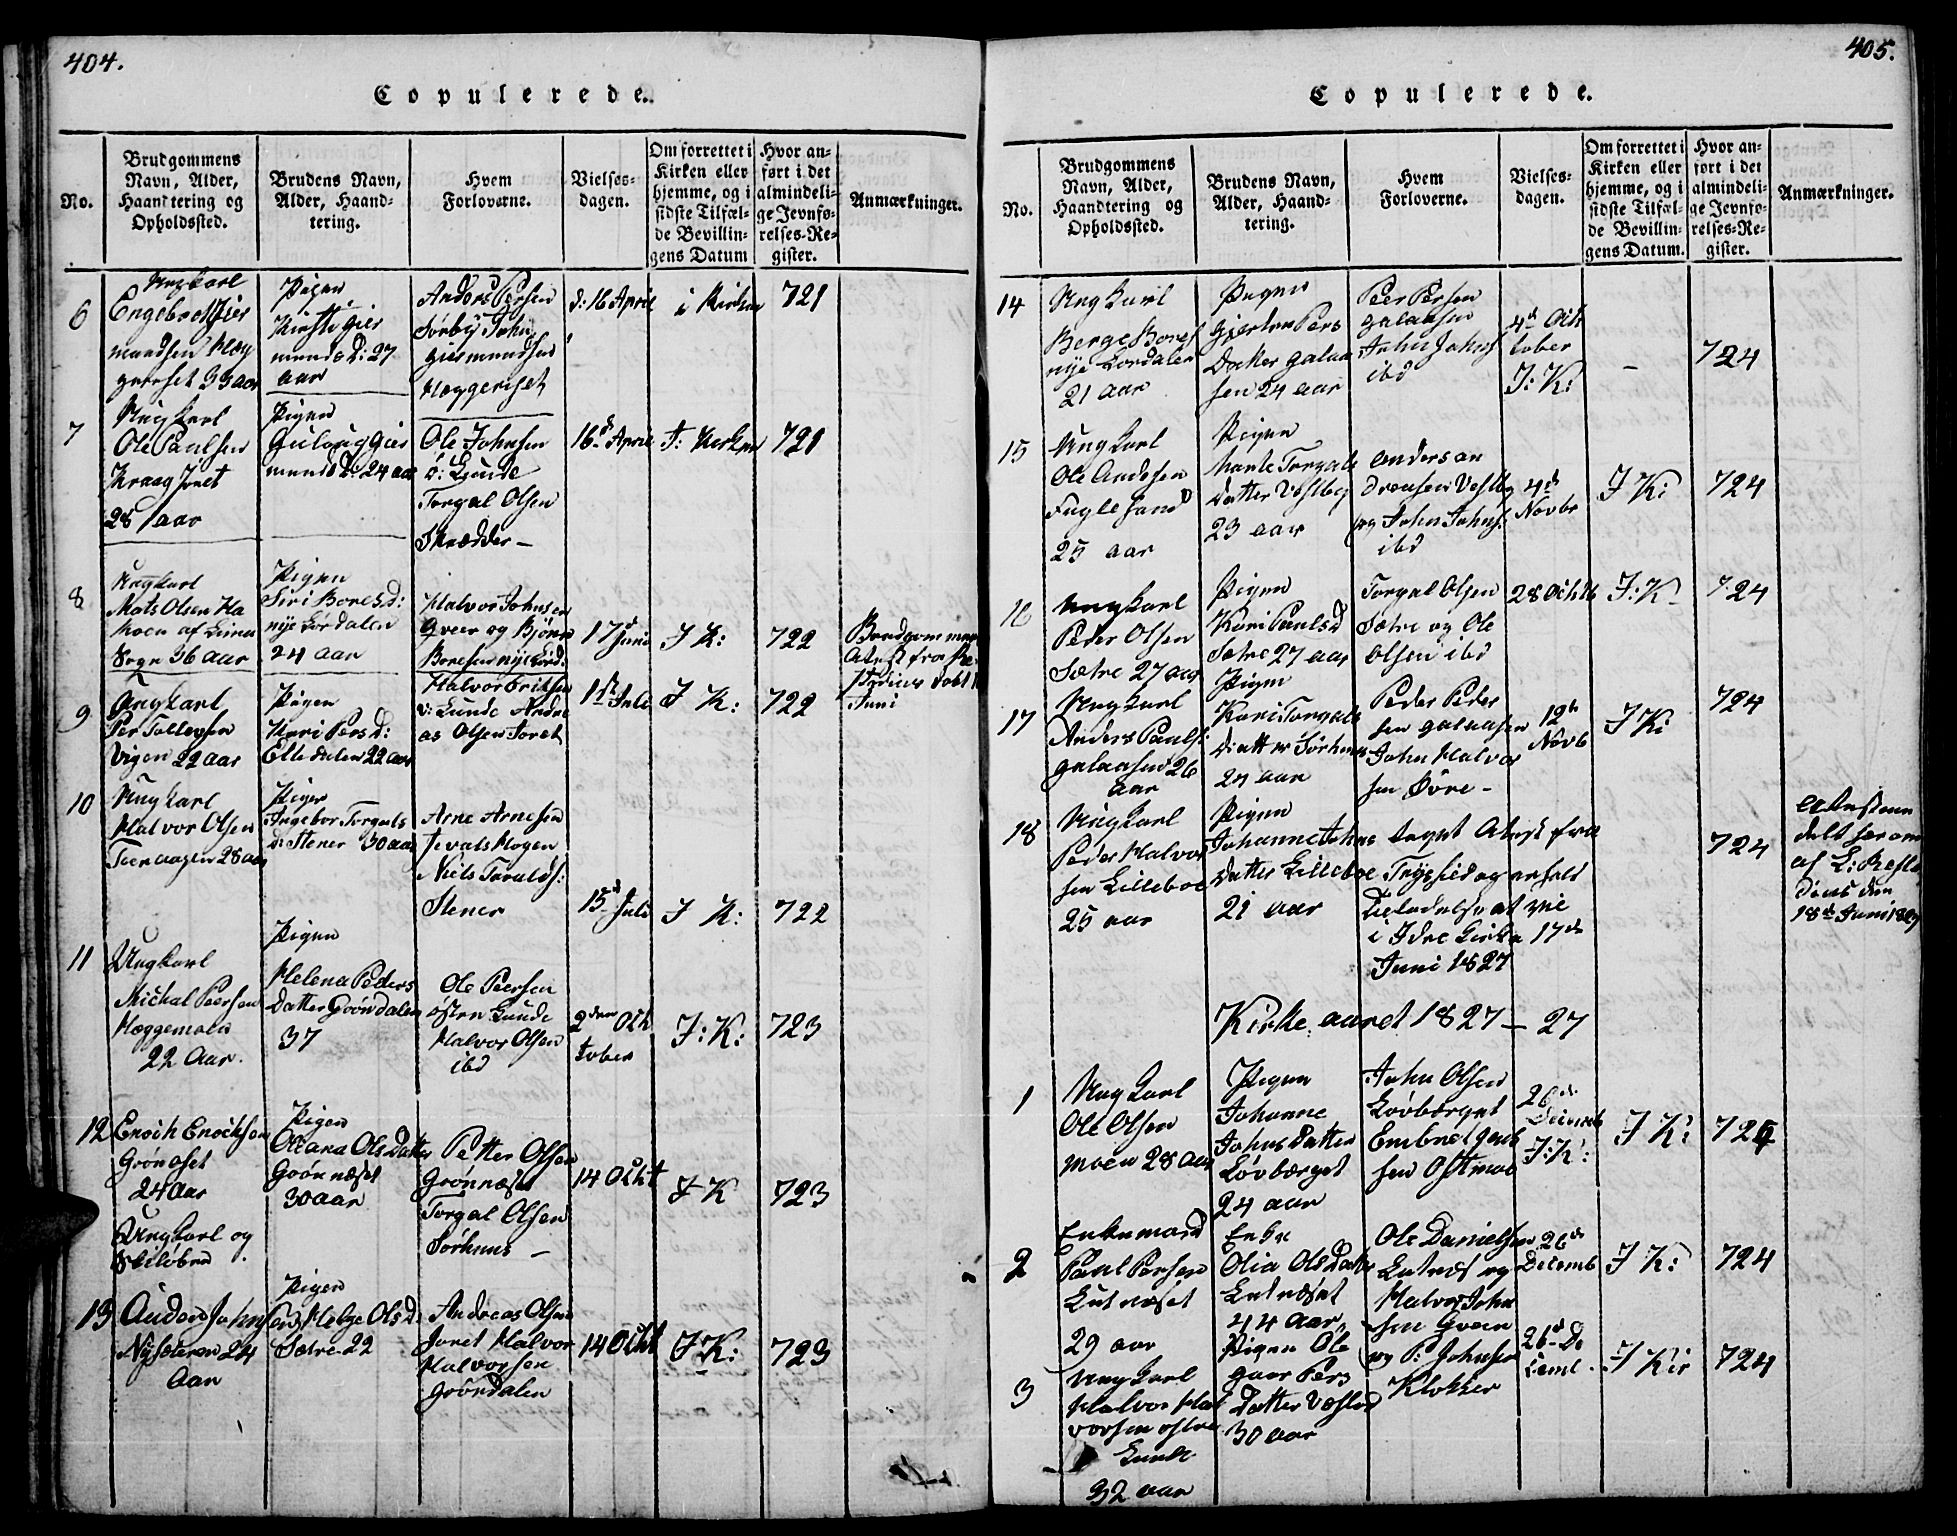 404.
Copulerede.
No.
Brudgommens Navn, Alder, Haandtering og Opholdssted.
Brudens Navn, Alder, Haandtering.
Hvem Forloverne.
Vielses-dagen.
Om forrettet i Kirken eller hjemme, og i sidste Tilfælde Bevillingens Datum
Hvor anført i det almindelige Jevnførelses-Register.
Anmærkninger.
6
Ungkarl
Engebret
33 aar
Pigen
27
aar
Anders Persen
Sørby John
d: 16 April
i Kirken
721
7
Ungkarl
Ole Paulsen
28 aar
Pigen
24 aar
Ole Johnsen
Ø: Lunde
Torgal Olsen
Skrædder –
16d April
I: Kirken
721
8
Ungkarl
Mats Olsen
af Lima
Sogn 36 aar
Pigen
Siri Boresd:
nye Lørdalen
24 aar
Halvor Johnsen
Qveen og Bjønn
Boresen nye Lørd:
17d Juni
I K:
722
Brudgommen
Attest fra
Juni
9
Ungkarl
Per Tollevsen
Vigen 22 aar
Pigen
Kari Persd:
Elledalen 22 aar
Halvor Eriksen
v: Lunde Andre
as Olsen Joret
1st Juli
I K:
722
10
Ungkarl
Halvor Olsen
28 aar
Pigen
Ingebor Torgals
D: Stener 30 aar
Arne Arnesen
Niels
Stener
15d Juli
I K:
722
11
Ungkarl
Michal Peersen
Heggemoen
22 Aar.
Pigen
Helena Peders
Datter Grøndalen
37
Ole Peersen
østen Lunde
Halvor Olsen
ibd
2den Ock
tober
I: K:
723
12
Enoch Enochsen
Grønoset
24 aar
Ungkarl og
Pigen
Oleana Olsdatter
Grønnæset
30 aar
Petter Olsen
Grønnæset
Torgal Olsen
Sørhuus –
14 Ockt
I K
723
13
Anden Johnsen
Nysæteren 24
Aar
Pigen
Helge Olsd:
Sætre 22
Andreas Olsen
Joret Halvor
Halvorsen
Grøndalen
14 Ockt
I K:
723
405.
Copulerede.
No.
Brudgommens Navn, Alder, Haandtering og Opholdssted.
Brudens Navn, Alder, Haandtering.
Hvem Forloverne.
Vielses-dagen.
Om forrettet i Kirken eller hjemme, og i sidste Tilfælde Bevillingens Datum.
Hvor anført i det almindelige Jevnførelses-Register.
Anmærkninger.
14
Ungkarl
Berge Bores
nye Lørdalen
21 aar
Pigen
Gjertru Pers
Datter Galaa
sen 24 aar
Peer Persen
Galaasen
John Johns
ibd
4d Ock
tober
I: K:
–
724
15
Ungkarl
Ole Andersen
Fuglesand
25 aar
Pigen
Marte Torgals
Datter Vestby
23 aar
Anders An
dreasen Vestby
og John Johns:
ibd
4d
Novbr
I K:
724
16
Ungkarl
Peder Olsen
Sætre 27 aar
Pigen
Kari Paulsd
Sætre 27 aar
Torgal Olsen
Sætre og Ole
Olsen ibd
28 Ocktb
I: K –
724
17
Ungkarl
Anders Pauls:
Galaasen 26
aar
Pigen
Kari Torgals
Datter Sørhuus
24 aar
Peder Peder
sen Galaasen
John Halvor
sen Øvre –
12te
Novb
I K:
724
18
Ungkarl
Peder Halvor
sen Lilleboe
25 aar
Pigen
Johanne Johns
Datter Lilleboe
21 aar
taget Attest fra
Trysild og erholdt
Tilladelse at vie
i Idre Kirke 17de
Juni 1827
724
Attesten
af
18de Juni 1827
Kirke aaret 1827 – 27
1
Ungkarl
Ole Olsen
Moen 28 aar
Pigen
Johanne
Johnsdatter
Løvberget
24 aar
John Olsen
Løvberget
Embret
sen Østmoe
26de
Decemb
I: K:
I K:
724
2
Enkemand
Paul Persen
Lutnæset
29 aar
Enke
Olia Olsdatter
Lutnæset
44 aar,
Ole Danielsen
Lutnæs og
Halvor John
sen Qveen
26de
Decemb
I K:
724
3
Ungkarl
Halvor Hal
vorsen østre
Lunde
32 aar
Pigen Ole
gaar Pers
Datter Væstad
30 aar
og P: Johnsen
Klokker
26d De
cemb
I Kir
724